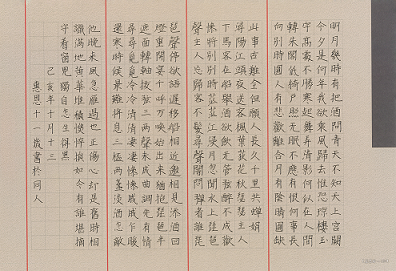 明月幾時有把酒問青天不知天上宮闕
今夕是何年我欲乘風歸去惟恐瓊樓玉
宇高處不勝寒起舞弄清影何似在人間
轉朱閣低綺戶照無眠不應有恨何事長
向別時圓人有悲歡離合月有陰晴圓缺
此事古難全但願人長久千里共嬋娟
潯陽江頭夜送客楓葉荻花秋瑟瑟主人
下馬客在船舉酒欲飲無管絃醉不成歡
慘將別別時茫茫江浸月忽聞水上琵琶
聲主人忘歸客不發尋聲闇問彈者誰琵
琶聲停欲語遲移船相近邀相見添酒回
燈重開宴千呼萬喚始出來猶抱琵琶半
遮面轉軸撥絃三兩聲未成曲調先有情
尋尋覓覓冷冷清清悽悽慘慘戚戚乍暖
還寒時候最難將息三杯兩盞淡酒怎敵
他晚來風急雁過也正傷心卻是舊時相
識滿地黃花堆積憔悴損如今有誰堪摘
守著窗兒獨自怎生得黑
乙亥年十月十三
惠思十一歲書於同人